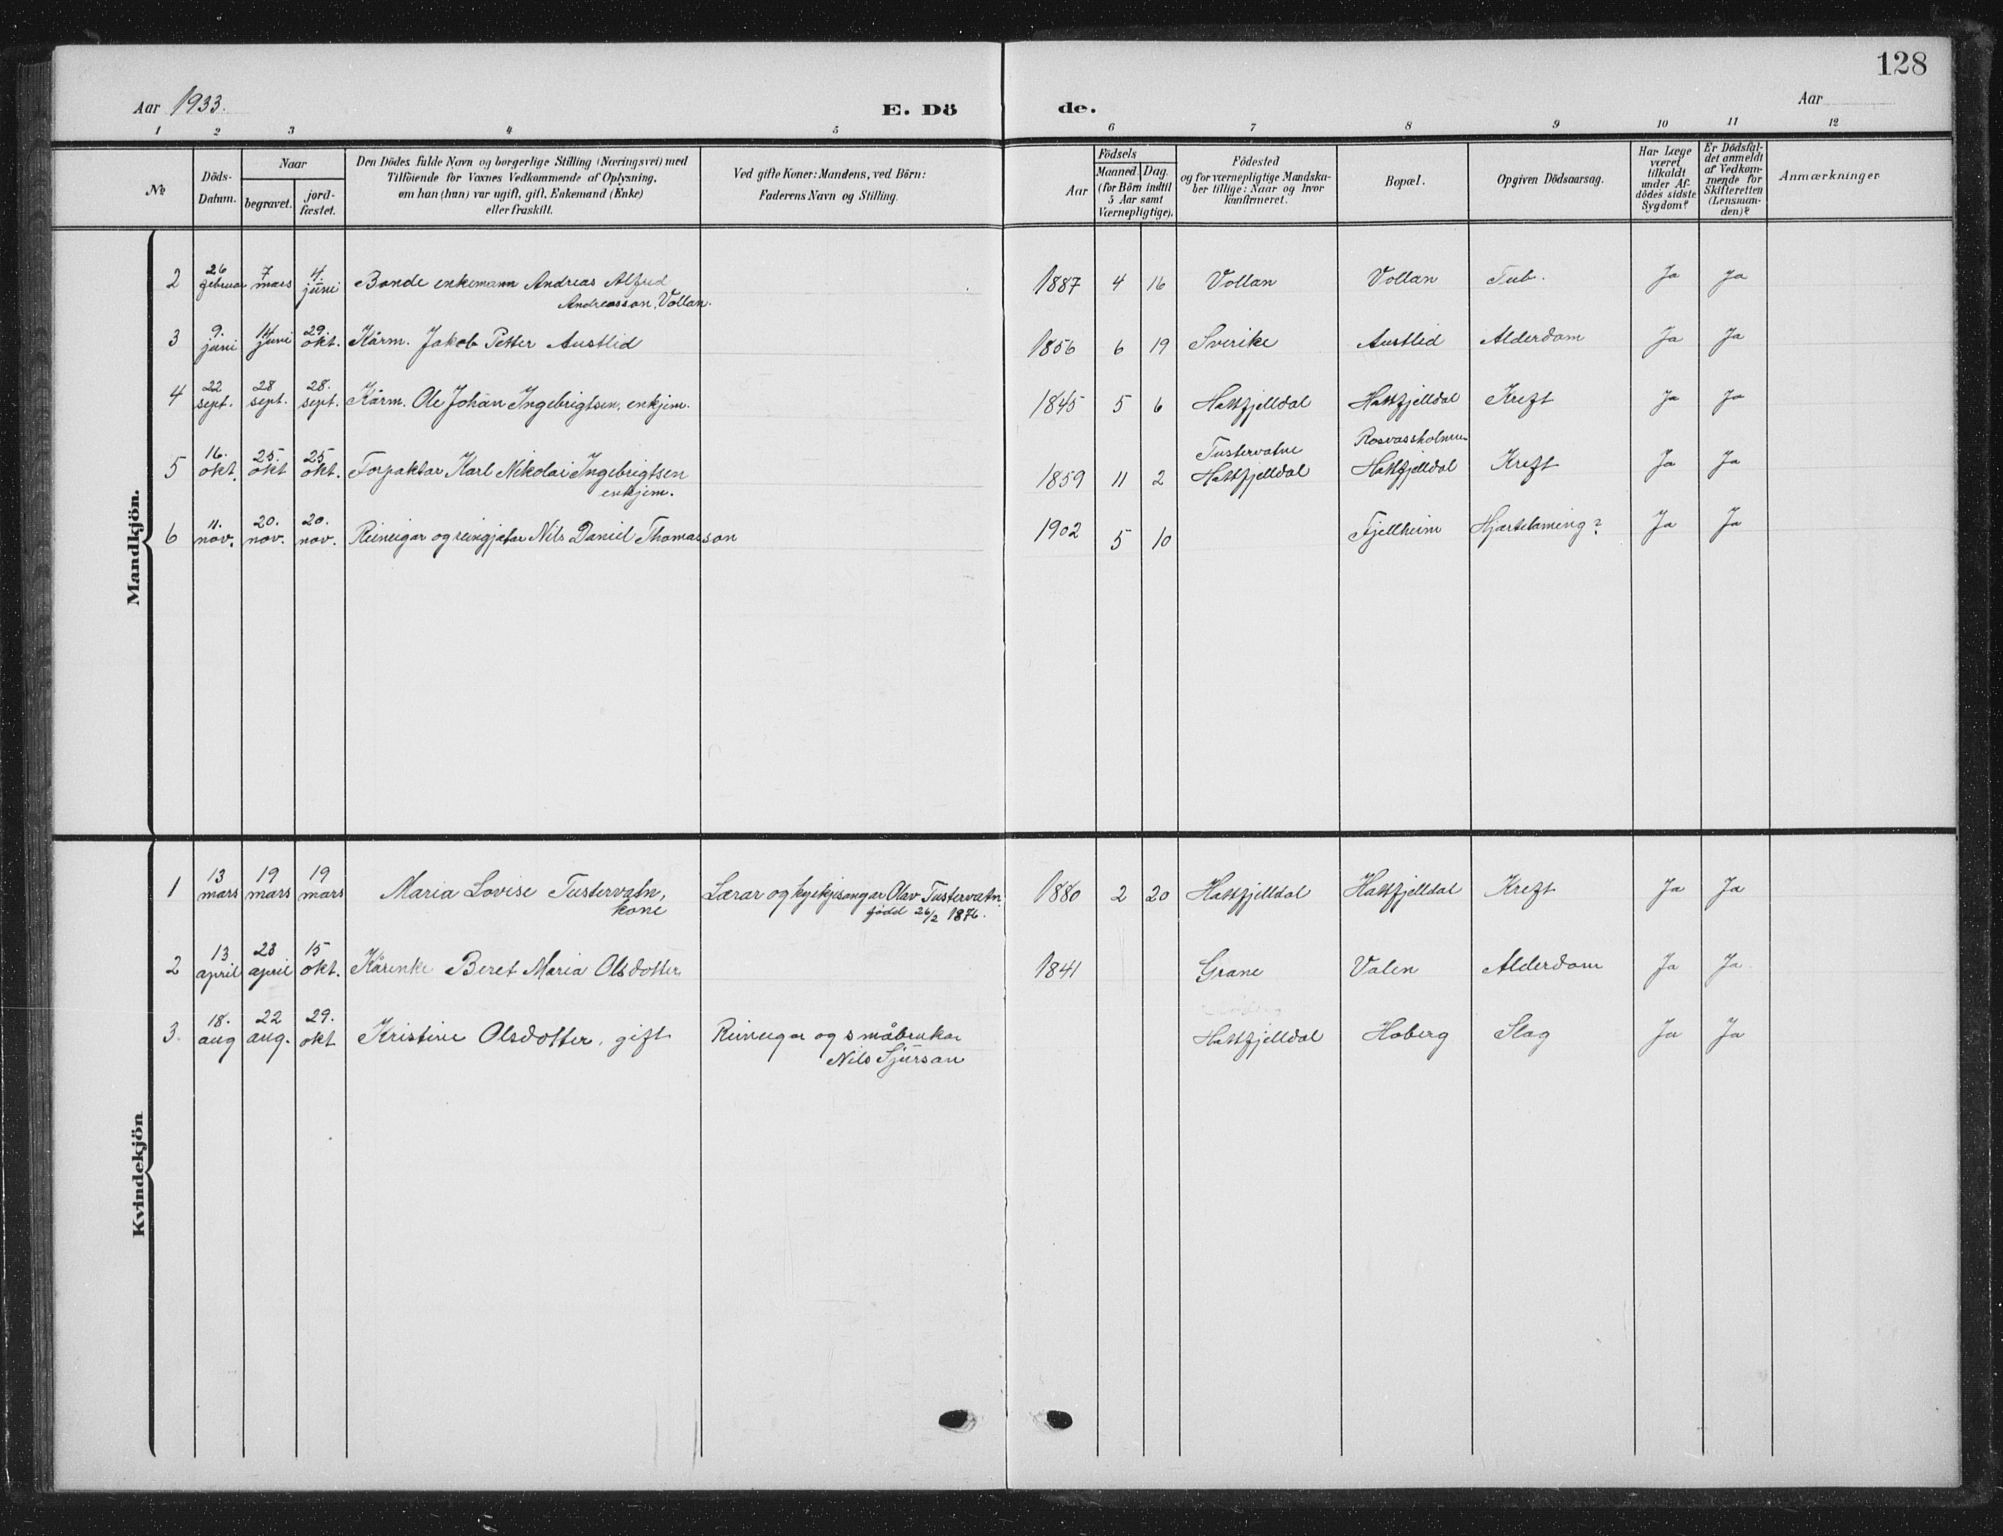 128
Aar 1933.
E. Dö
de.
Aar
1 2 3 4 5 6 7 8 9 10 11 12
No
Döds-
Datum.
Naar
begravet.
jord-
fæstet.
Den Dödes fulde Navn og borgerlige Stilling (Næringsvei) med
Tilföiende for Voxnes Vedkommende af Oplysning,
om han (hun) var ugift, gift, Enkemand (Enke)
eller fraskilt.
Ved gifte Koner: Mandens, ved Börn:
Faderens Navn og Stilling.
Födsels
Aar
Maaned Dag.
(for Börn indtil
5 Aar samt
Værnepligtige).
Födested
og for værnepligtige Mandska-
ber tillige: Naar og hvor
konfirmeret.
Bopæl.
Opgiven Dödsaarsag.
Har Læge
været
tilkaldt
under Af-
dödes sidste
Sygdom?
Er Dödsfal-
det anmeldt
af Vedkom-
mende for
Skifteretten
(Lensman-
den)?
Anmærkninger
Mandkjön.
2 26 februar 7 mars 4. juni Bonde enkemann Andreas Alfred
Andreasson, Vollan. 1887 4 16 Vollan Vollan Tub. Ja Ja
3 9. juni 14 juni 29. okt. Kårm. Jakob Petter Austlid 1856 6 19 Sverike Austlid Alderdom Ja Ja
4 22 sept. 28 sept. 28. sept. Kårm. Ole Johan Ingebrigtsen, enkjem. 1845 5 6 Hattfjelldal Hattfjelldal Kreft Ja Ja
5 16. okt. 25. okt 25 okt. Forpaktar Karl Nikolai Ingebrigtsen
enkjem. 1859 11 2 Tustervatne
Hattfjelldal Røsvassholmen
Hattfjelldal Kreft Ja Ja
6 11. nov. 20. nov. 20. nov. Reineigar og reingjætar Nils Daniel Thomasson 1902 5 10 Fjellheim Hjartelaming? Ja Ja
Kvindekjön
1 13 mars 19 mars 19 mars Maria Lovise Tustervatn,
kone Lærar og kyrkjesongar Olav Tustervatn.
född 26/2 1876. 1880 2 20 Hattfjelldal Hattfjelldal Kreft Ja Ja
2 13 april 23 april 15 okt. Kårenke Beret Maria Olsdotter 1841 Grane Valen Alderdom Ja Ja
3. 18. aug 22 aug. 29. okt Kristine Olsdotter, gift Reineigar og småbrukar
Nils Sjursan Hattfjelldal Hoberg Slag Ja Ja